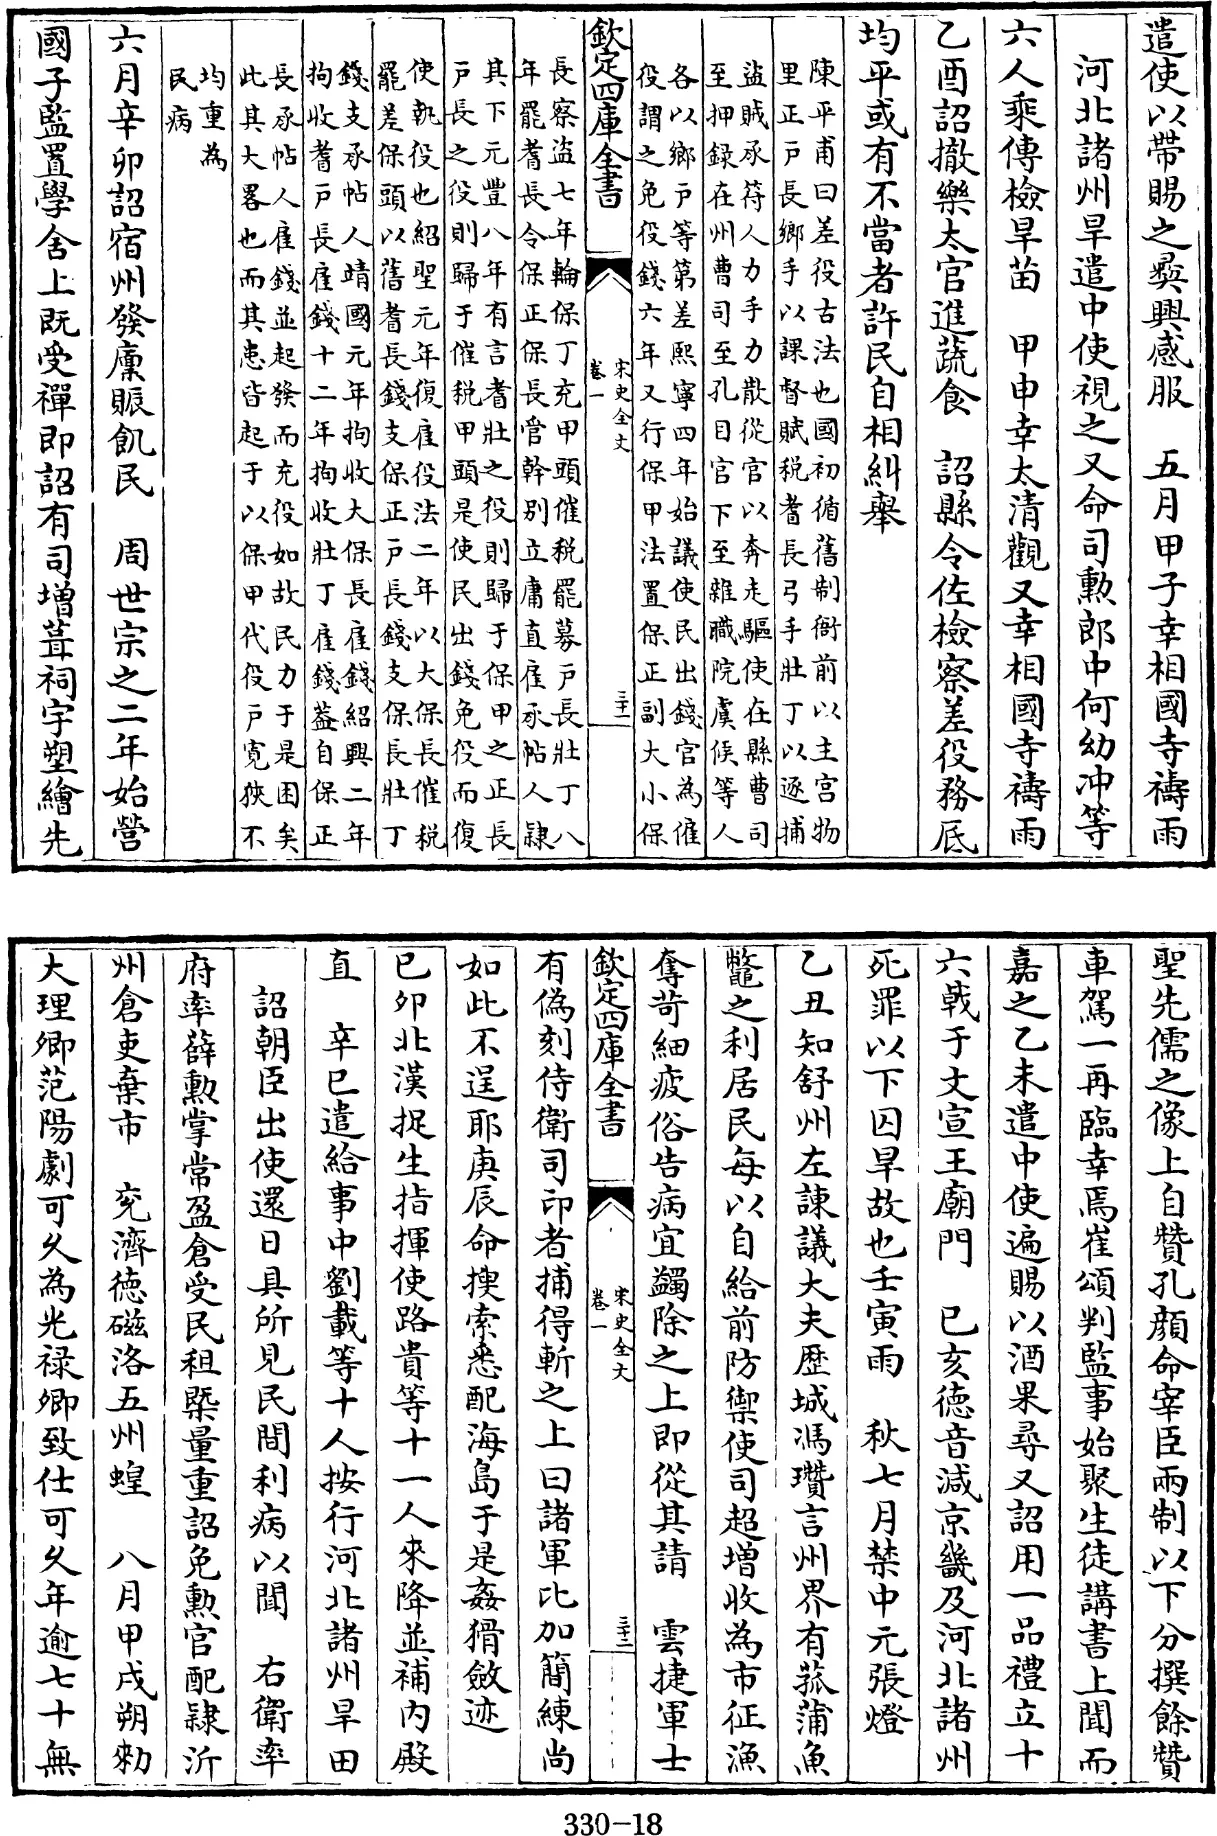 遣使以帶賜之彛興感服　五月甲子幸相國寺禱雨
河北諸州旱遣中使視之又命司勲郎中何幼冲等
六人乘傳檢旱苗　甲申幸太清觀又幸相國寺禱雨
乙酉詔撤樂太官進蔬食　詔縣令佐檢察差役務底
均平或有不當者許民自相糾舉
陳平甫曰差役古法也國初循舊制衙前以主官物
里正户長鄉手以課督賦税耆長弓手壯丁以逐捕
盜賊承符人力手力散從官以奔走驅使在縣曹司
至押録在州曹司至孔目官下至雜職院虞候等人
各以鄉户等第差熙寧四年始議使民出錢官為催
役謂之免役錢六年又行保甲法置保正副大小保
欽定四庫全書
宋史全文
卷一
三十一
長察盜七年輪保丁充甲頭催税罷募户長壯丁八
年罷耆長令保正保長管幹別立庸直雇承帖人隷
其下元豐八年有言耆壯之役則歸于保甲之正長
户長之役則歸于催税甲頭是使民出錢免役而復
使執役也紹聖元年復雇役法二年以大保長催税
罷差保頭以舊耆長錢支保正户長錢支保長壯丁
錢支承帖人靖國元年拘收大保長雇錢紹興二年
拘收耆户長雇錢十二年拘收壯丁雇錢葢自保正
長承帖人雇錢並起發而充役如故民力于是困矣
此其大畧也而其患皆起于以保甲代役户寛狹不
均重為
民病
六月辛卯詔宿州發廩賑飢民　周世宗之二年始營
國子監置學舍上既受禪即詔有司增葺祠宇塑繪先
聖先儒之像上自贊孔顔命宰臣兩制以下分撰餘贊
車駕一再臨幸焉崔頌判監事始聚生徒講書上聞而
嘉之乙未遣中使遍賜以酒果尋又詔用一品禮立十
六戟于文宣王廟門　已亥德音減京畿及河北諸州
死罪以下囚旱故也壬寅雨　秋七月禁中元張燈
乙丑知舒州左諫議大夫歴城馮瓚言州界有菰蒲魚
鼈之利居民每以自給前防禦使司超增收為市征漁
奪苛細疲俗告病宜蠲除之上即從其請　雲捷軍士
欽定四庫全書
宋史全文
卷一
三十二
有偽刻侍衛司印者捕得斬之上曰諸軍比加簡練尚
如此不逞耶庚辰命搜索悉配海島于是姦猾斂迹
已卯北漢捉生指揮使路貴等十一人來降並補内殿
直　辛巳遣給事中劉載等十人按行河北諸州旱田
詔朝臣出使還日具所見民間利病以聞　右衛率
府率薛勲掌常盈倉受民租槩量重詔免勲官配隷沂
州倉吏棄市　兖濟德磁洺五州蝗　八月甲戌朔勑
大理卿范陽劇可久為光禄卿致仕可久年逾七十無
330-18